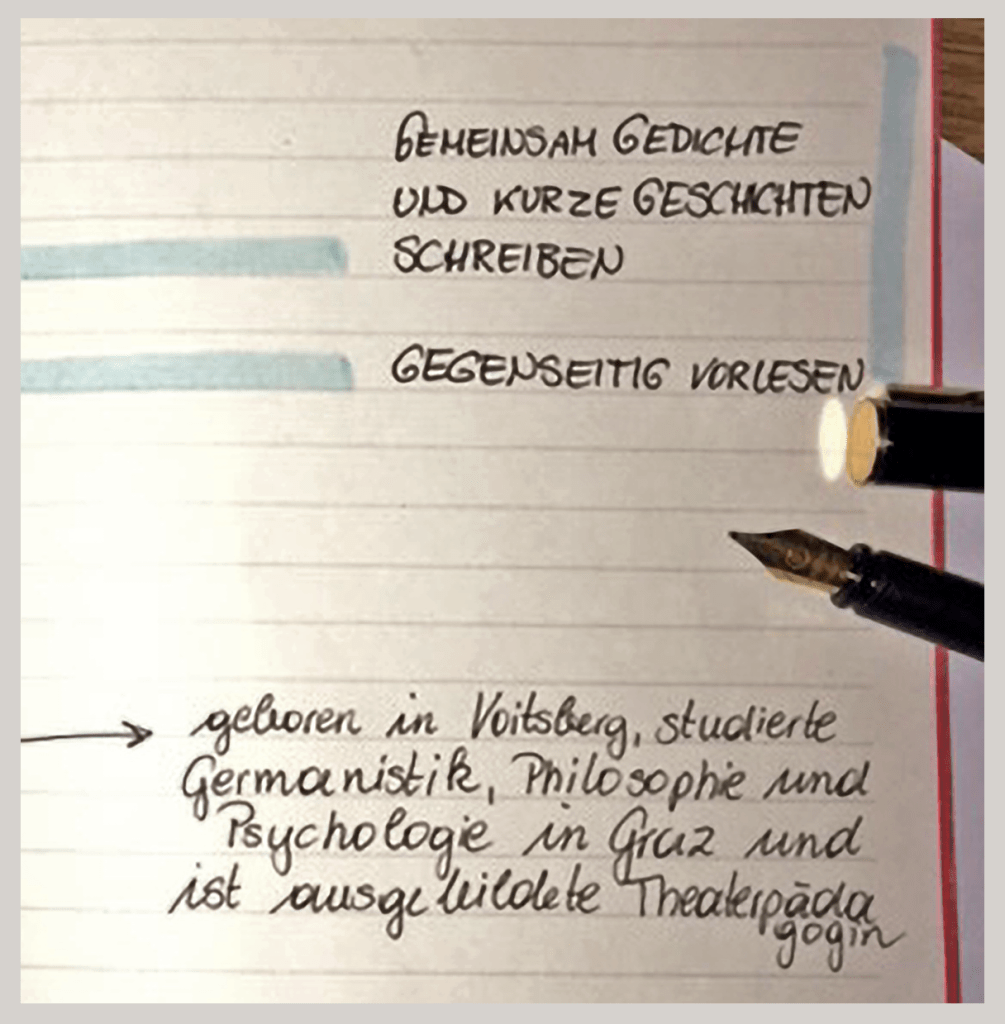 GEMEINSAM GEDICHTE
UND KURZE GESCHICHTEN
SCHREIBEN
GEGENSEITIG VORLESEN
geboren in Voitsberg, studierte
Germanistik, Philosophie und
Psychologie in Graz und
ist ausgebildete Theaterpäda
gogin